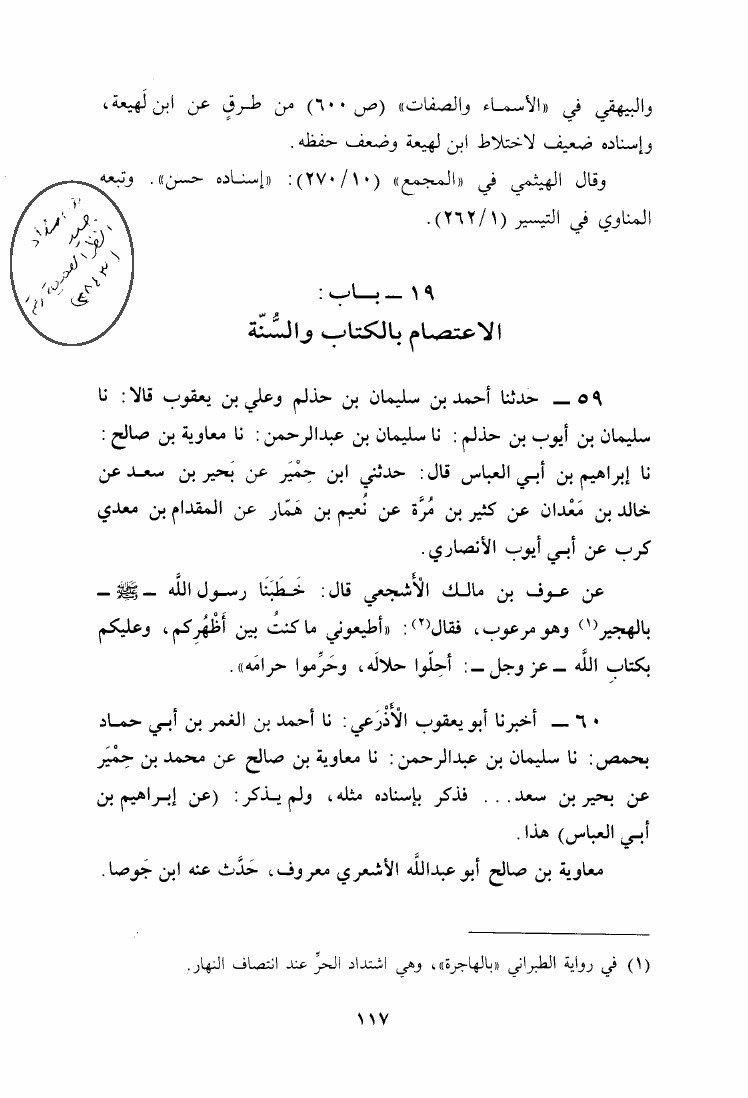 والبيهقي في «الأسماء والصفات» (ص ٦٠٠) من طرقٍ عن ابن لَهيعة،
وإسناده ضعيف لاختلاط ابن لهيعة وضعف حفظه.
وقال الهيثمي في «المجمع» (١٠/ ٢٧٠): «إسناده حسن». وتبعه
المناوي في التيسير (١/ ٢٦٢).
١٩ ــ بــاب:
الاعتصام بالكتاب والسُّنّة
٥٩ ــ حدثنا أحمد بن سليمان بن حذلم وعلي بن يعقوب قالا: نا
سليمان بن أيوب بن حذلم: نا سليمان بن عبدالرحمن: نا معاوية بن صالح:
نا إبراهيم بن أبي العباس قال: حدثني ابن حِمْيَر عن بَحير بن سعد عن
خالد بن مَعْدان عن كثير بن مُرَّة عن نُعيم بن هَمّار عن المقدام بن معدي
كرب عن أبي أيوب الأنصاري.
عن عوف بن مالك الأشجعي قال: خَطَبَنَا رسول اللَّه ــ ﷺ ــ
بالهجير(١) وهو مرعوب، فقال(٢): «أطيعوني ما كنتُ بين أَظْهُرِكم، وعليكم
بكتابِ اللَّه ــ عز وجل ــ: أحِلّوا حلالَه، وحَرِّموا حرامَه».
٦٠ ــ أخبرنا أبو يعقوب الأَذْرَعي: نا أحمد بن الغمر بن أبي حماد
بحمص: نا سليمان بن عبدالرحمن: نا معاوية بن صالح عن محمد بن حِمْيَر
عن بحير بن سعد... فذكر بإسناده مثله، ولم يذكر: (عن إبراهيم بن
أبي العباس) هذا.
معاوية بن صالح أبو عبداللَّه الأشعري معروف، حَدَّث عنه ابن جَوصا.
(١) في رواية الطبراني «بالهاجرة»، وهي اشتداد الحرِّ عند انتصاف النهار.
١١٧